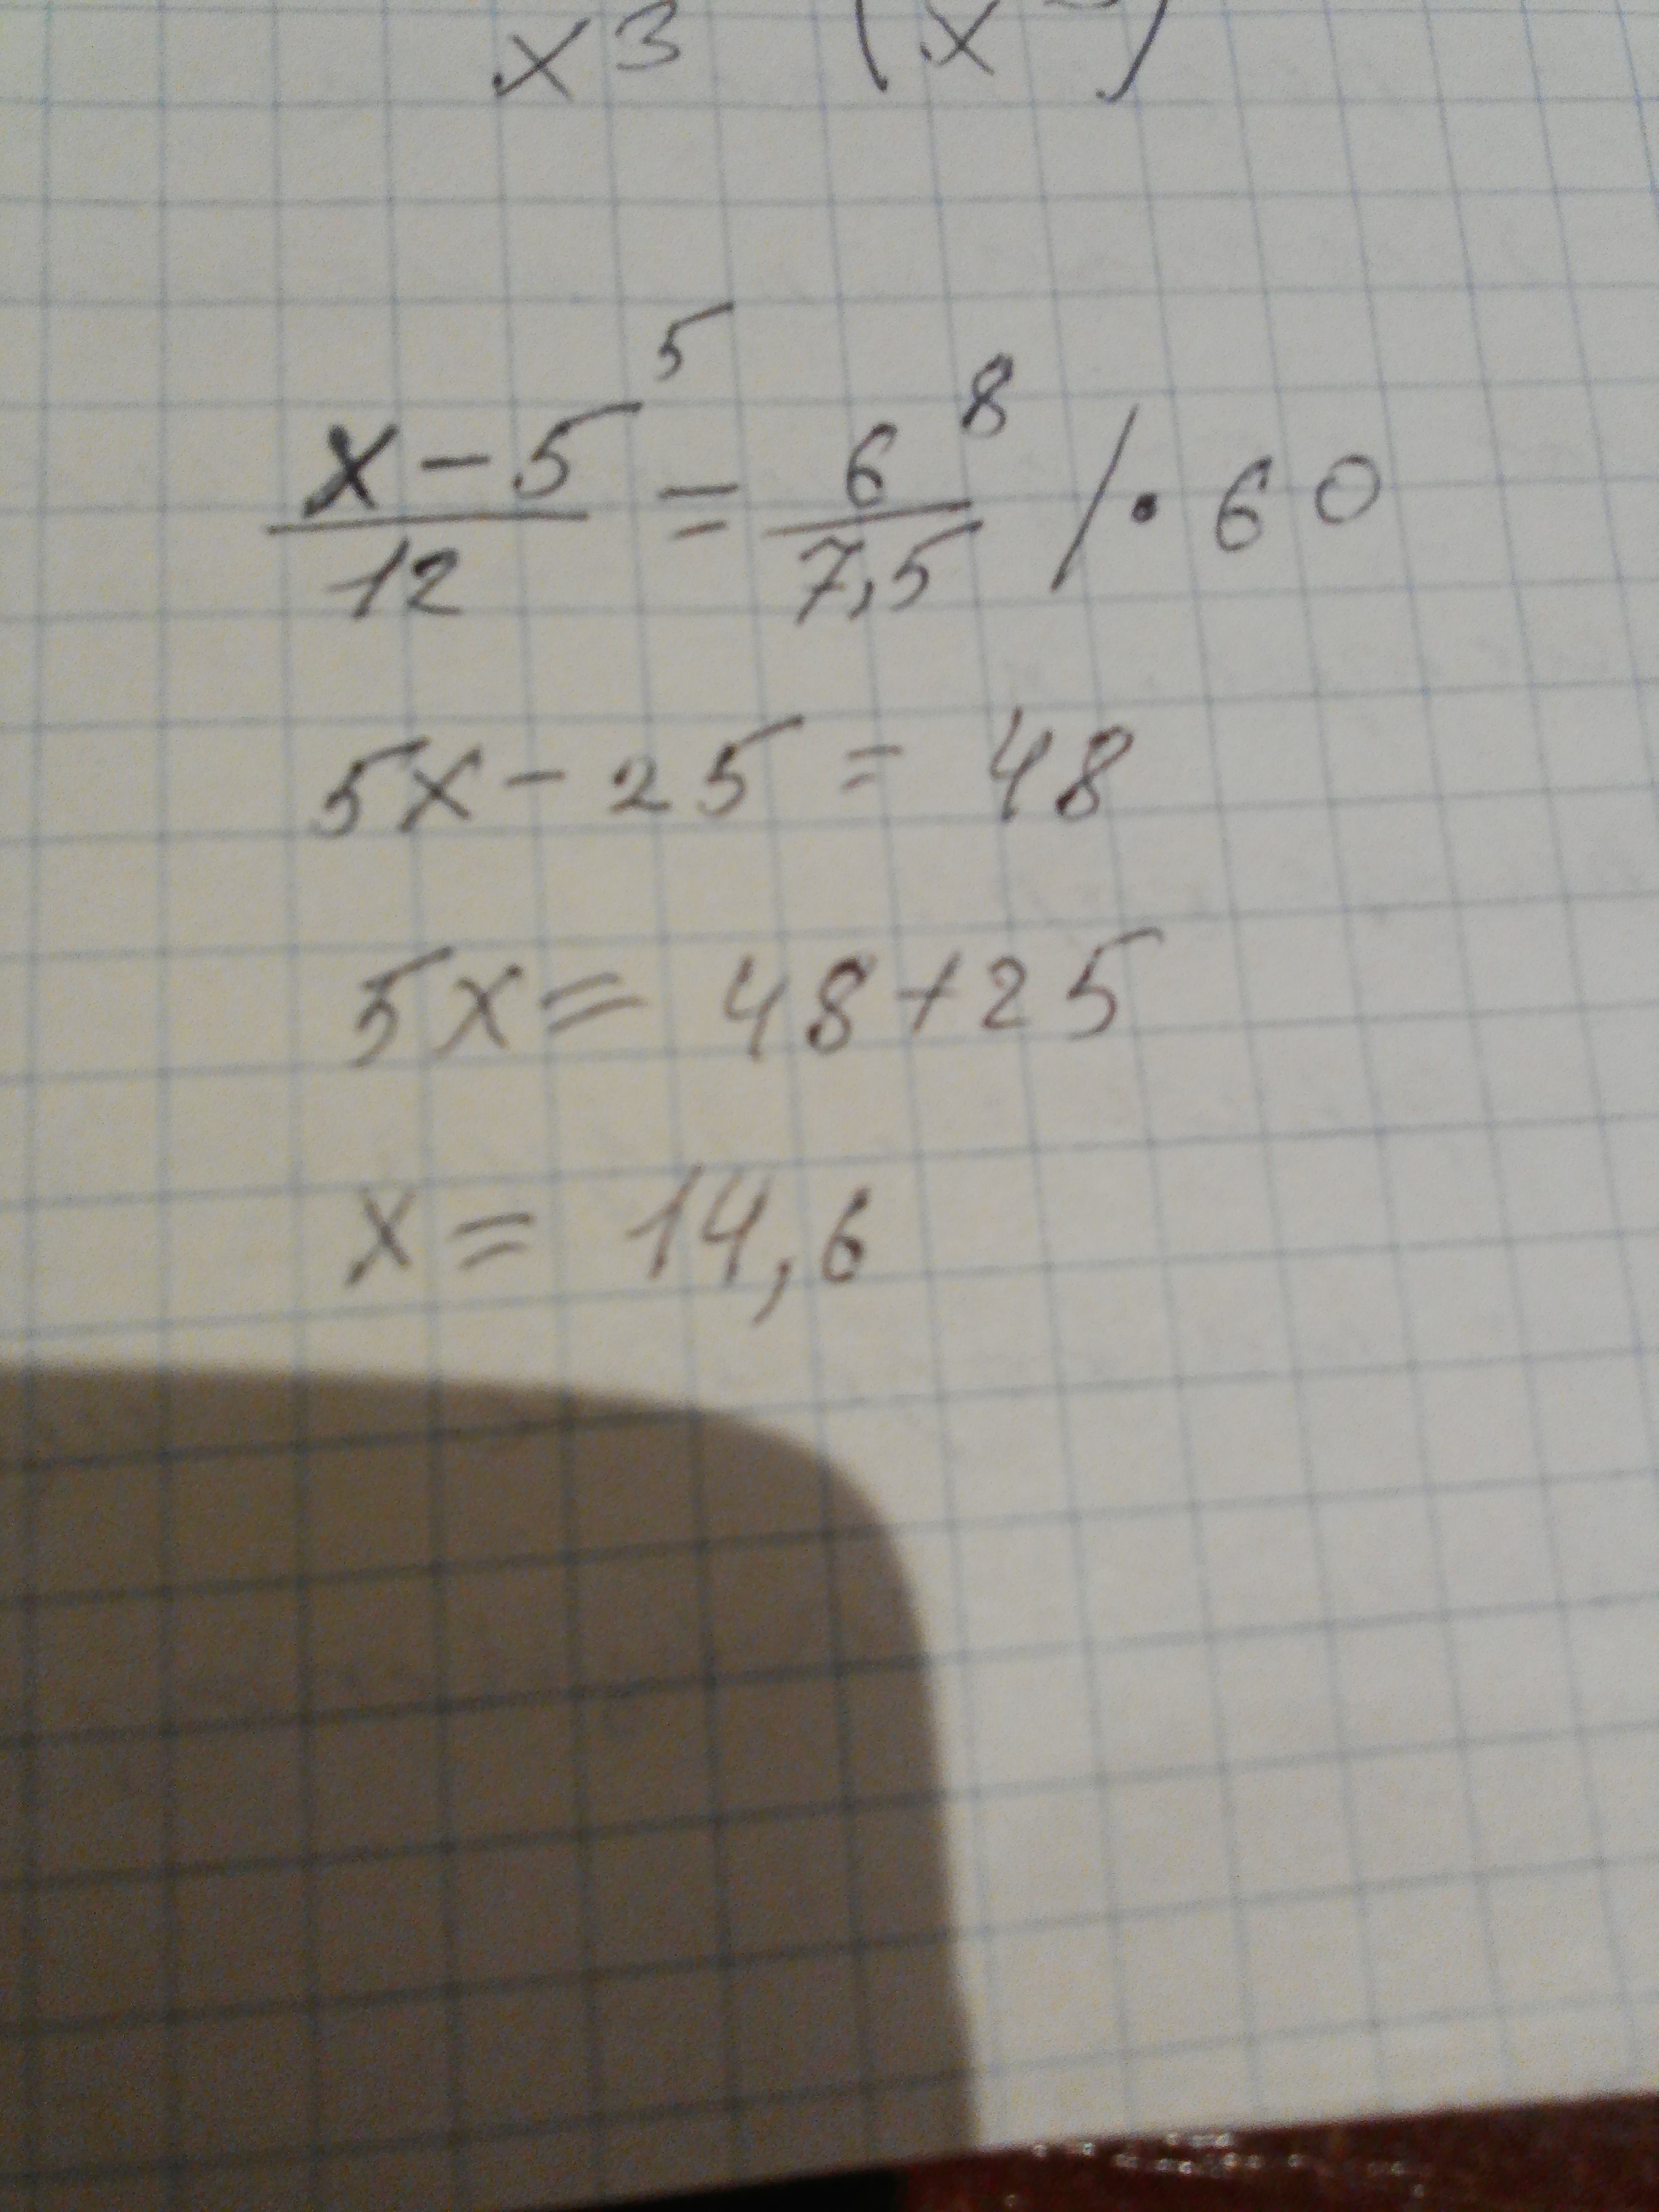 x³ (x )
(x-5)/12 ⁵ = 6/7,5 ⁸ / · 60
5x - 25 = 48
5x = 48 + 25
x = 14,6